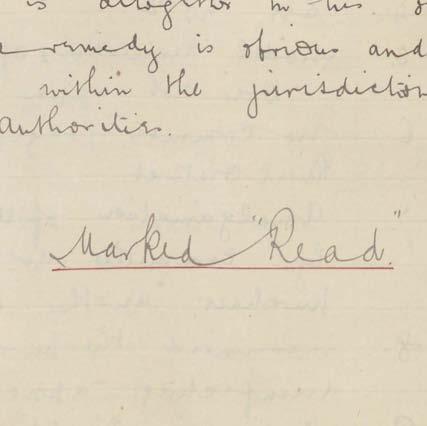 is altogether in his
remedy is obvious and
within the jurisdiction
authorities.
Marked "Read".